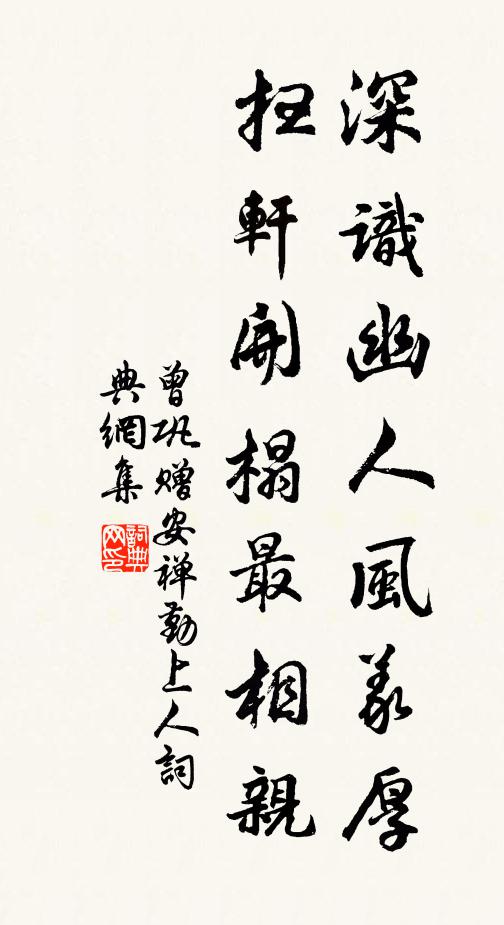 深識幽人風義厚
扫軒開榻最相親
曾巩赠安禅勤上人詞
典網集
詞典
网印